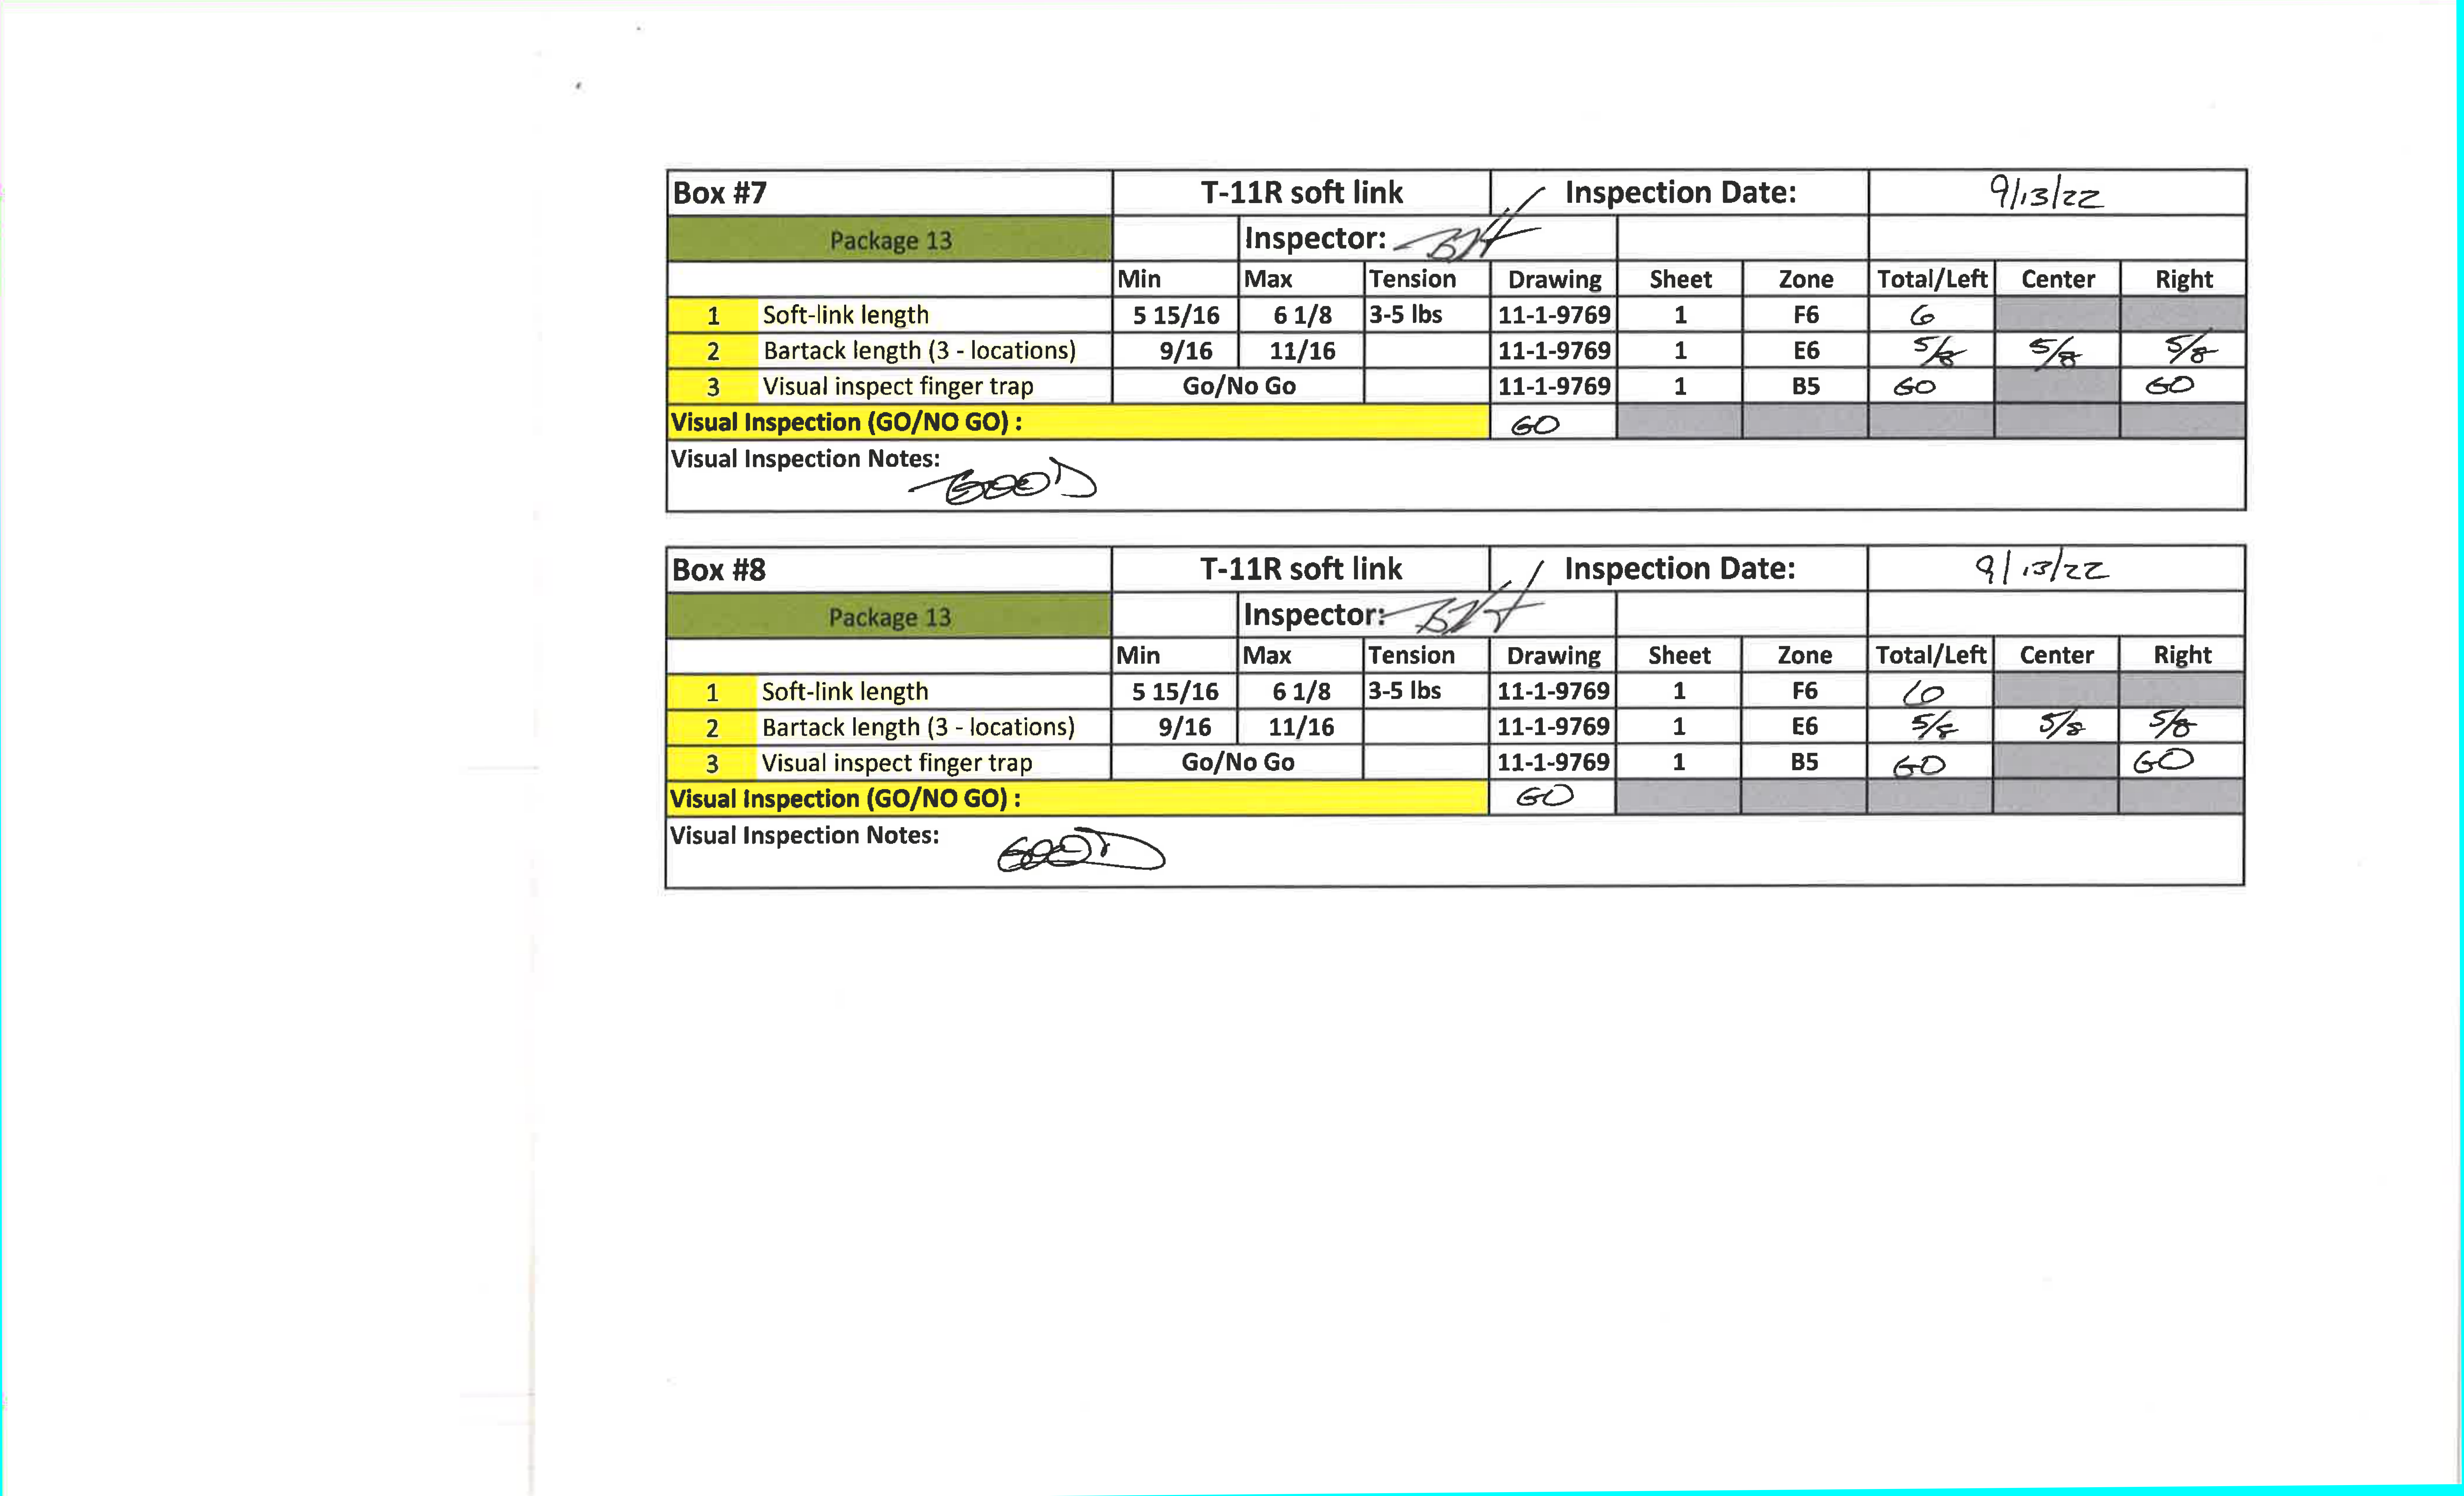 Box #7 T-11R soft link Inspection Date: 9/13/22
Package 13 Inspector:
Min Max Tension Drawing Sheet Zone Total/Left Center Right
1 Soft-link length 5 15/16 6 1/8 3-5 lbs 11-1-9769 1 F6 6
2 Bartack length (3 - locations) 9/16 11/16 11-1-9769 1 E6 5/8 5/8 5/8
3 Visual inspect finger trap Go/No Go 11-1-9769 1 B5 GO GO
Visual Inspection (GO/NO GO) : GO
Visual Inspection Notes:
GOOD
Box #8 T-11R soft link Inspection Date: 9/13/22
Package 13 Inspector:
Min Max Tension Drawing Sheet Zone Total/Left Center Right
1 Soft-link length 5 15/16 6 1/8 3-5 lbs 11-1-9769 1 F6 6
2 Bartack length (3 - locations) 9/16 11/16 11-1-9769 1 E6 5/8 5/8 5/8
3 Visual inspect finger trap Go/No Go 11-1-9769 1 B5 GO GO
Visual Inspection (GO/NO GO) : GO
Visual Inspection Notes:
GOOD